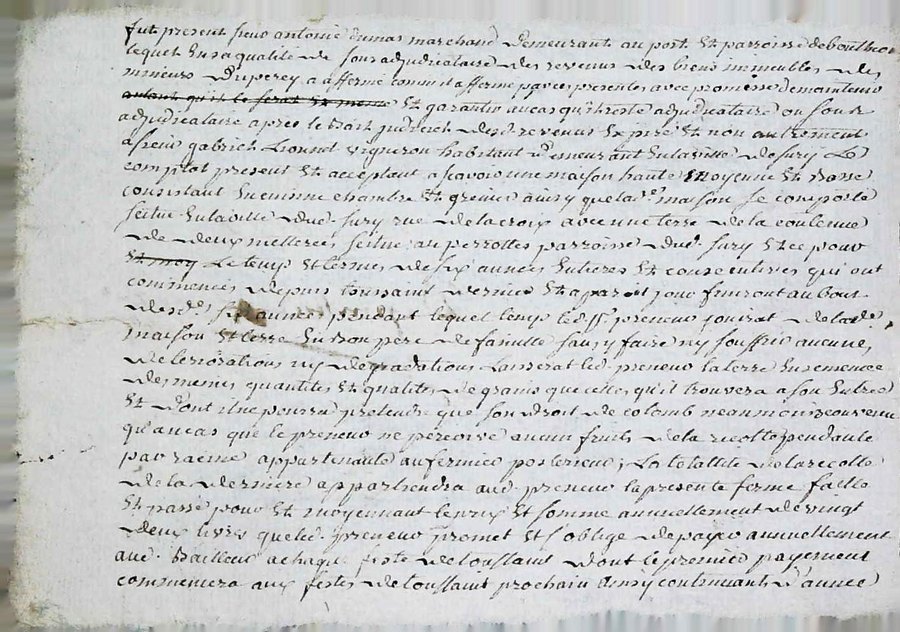 fut present sieur antoine dumas marchand demeurant au port et parroisse de bontheon
lequel en sa qualité de sousadjudicataire des revenus des biens immeubles des
mineurs duperey a affermé comme il afferme par ces presentes avec promesse de maintenir
autant qu'il le serat et meme et garantir au cas qu'il reste adjudicataire ou sous
adjudicataire apres le bail judiciel desd revenus expiré et non autrement
a sieur gabriel Lionnet vigneron habitant demeurant en la ville de sury Le
comptal present et acceptant a scavoir une maison haute moyenne et basse
consistant en cuisine chambre et grenier ainsy que lad.e maison se comporte
scitue en la ville dud. sury rue de la croix avec une terre de la contenue
de deux mettereés scitue au perrottes parroisse dud. sury et ce pour
et moy Le temp et termes de six années entieres et consecutives qui ont
commencés depuis toussaint dernier et a pareil jour finiront au bout
desd.es six années pendant lequel temp led. sr. preneur jouirat de lad.e
maison et terre en bon pere de famille sans y faire ny souffrir aucunes
deteriorations ny degradations Laisserat led preneur la terre ensemencée
des memes quantites et qualites de grains que celles qu'il trouvera a son entrée
et dont il ne pourra pretendre que son droit de colomb neanmoins convenu
qu'au cas que le preneur ne percoive aucun fruits de la recolte pendante
par racine appartenante au fermier posterieur, La totallité de la recolte
de la derniere appartiendra aud. preneur la presente ferme faitte
et passé pour et moyennant le prix et somme annuellement de vingt
deux livres que led. preneur promet et s'oblige de payer annuellement
aud. Bailleur a chaque feste de toussaint dont le premier payement
commencera aux festes de toussaint prochain ainsy continuant d'année